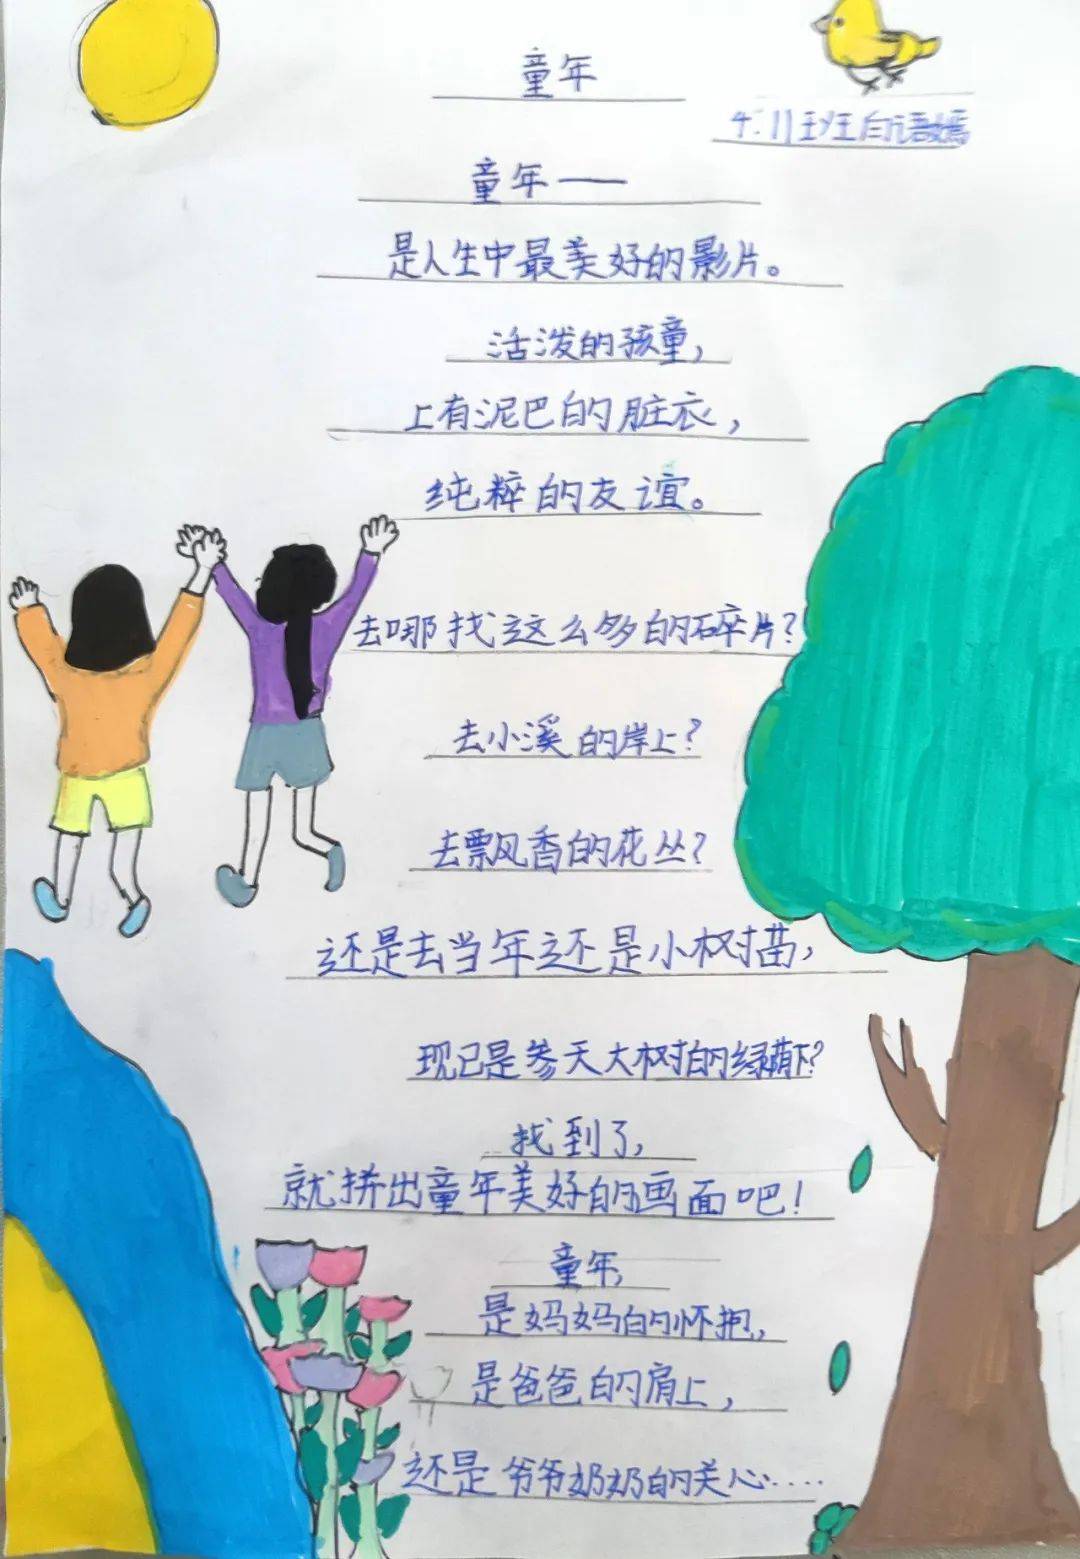 童年
4.11班白语嫣
童年——
是人生中最美好的影片。
活泼的孩童,
上有泥巴的脏衣,
纯粹的友谊。
去哪找这么多的碎片?
去小溪的岸上?
去飘香的花丛?
还是去当年还是小树苗,
现已是参天大树的绿荫下?
找到了,
就拼出童年美好的画面吧!
童年,
是妈妈的怀抱,
是爸爸的肩上,
还是爷爷奶奶的关心……